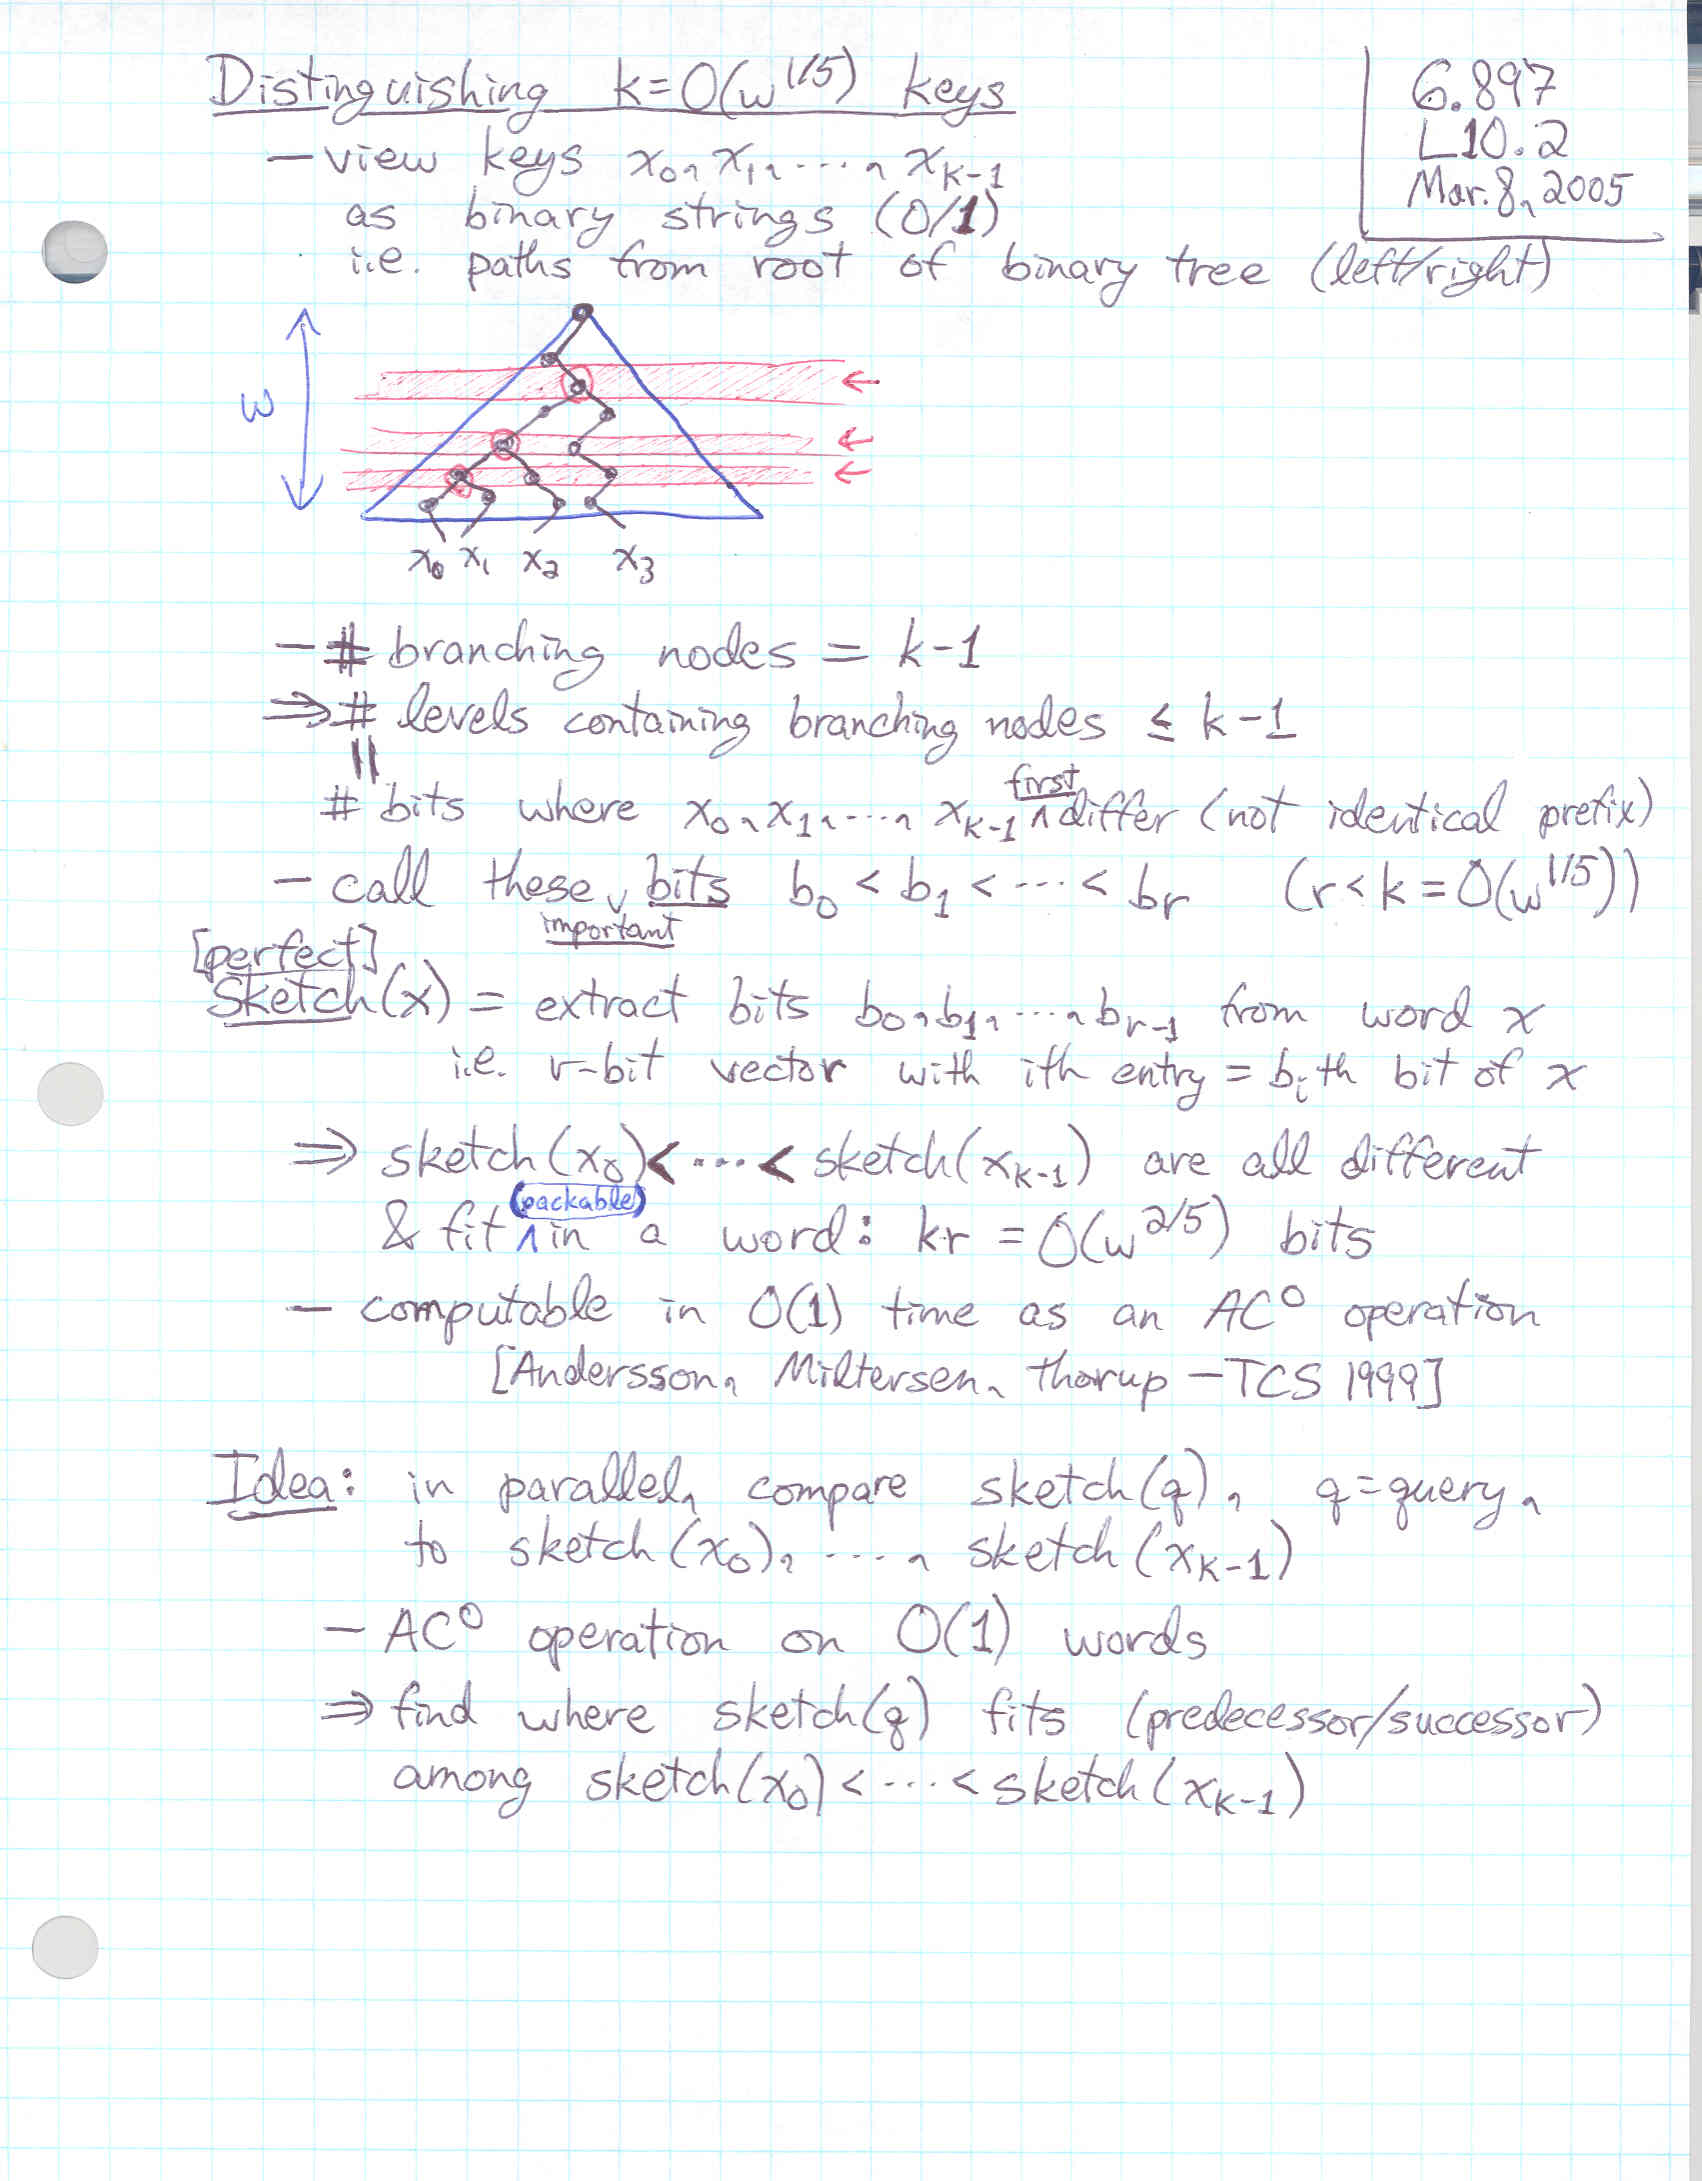 Distinguishing k=O(w^{1/5}) keys
6.897
L10.2
Mar. 8, 2005
— view keys x₀, x₁, ···, x_{k-1}
as binary strings (0/1)
i.e. paths from root of binary tree (left/right)
w
x₀ x₁ x₂ x₃
— # branching nodes = k-1
⇒ # levels containing branching nodes ≤ k-1
||
# bits where x₀, x₁, ···, x_{k-1} ^first differ (not identical prefix)
— call these ˅important bits b₀ < b₁ < ··· < b_r (r < k = O(w^{1/5}))
[perfect]
sketch(x) = extract bits b₀, b₁, ···, b_{r-1} from word x
i.e. r-bit vector with ith entry = b_i th bit of x
⇒ sketch(x₀) < ··· < sketch(x_{k-1}) are all different
& fit ^(packable) in a word: kr = O(w^{2/5}) bits
— computable in O(1) time as an AC⁰ operation
[Andersson, Miltersen, Thorup — TCS 1999]
Idea: in parallel, compare sketch(q), q=query,
to sketch(x₀), ···, sketch(x_{k-1})
— AC⁰ operation on O(1) words
⇒ find where sketch(q) fits (predecessor/successor)
among sketch(x₀) < ··· < sketch(x_{k-1})